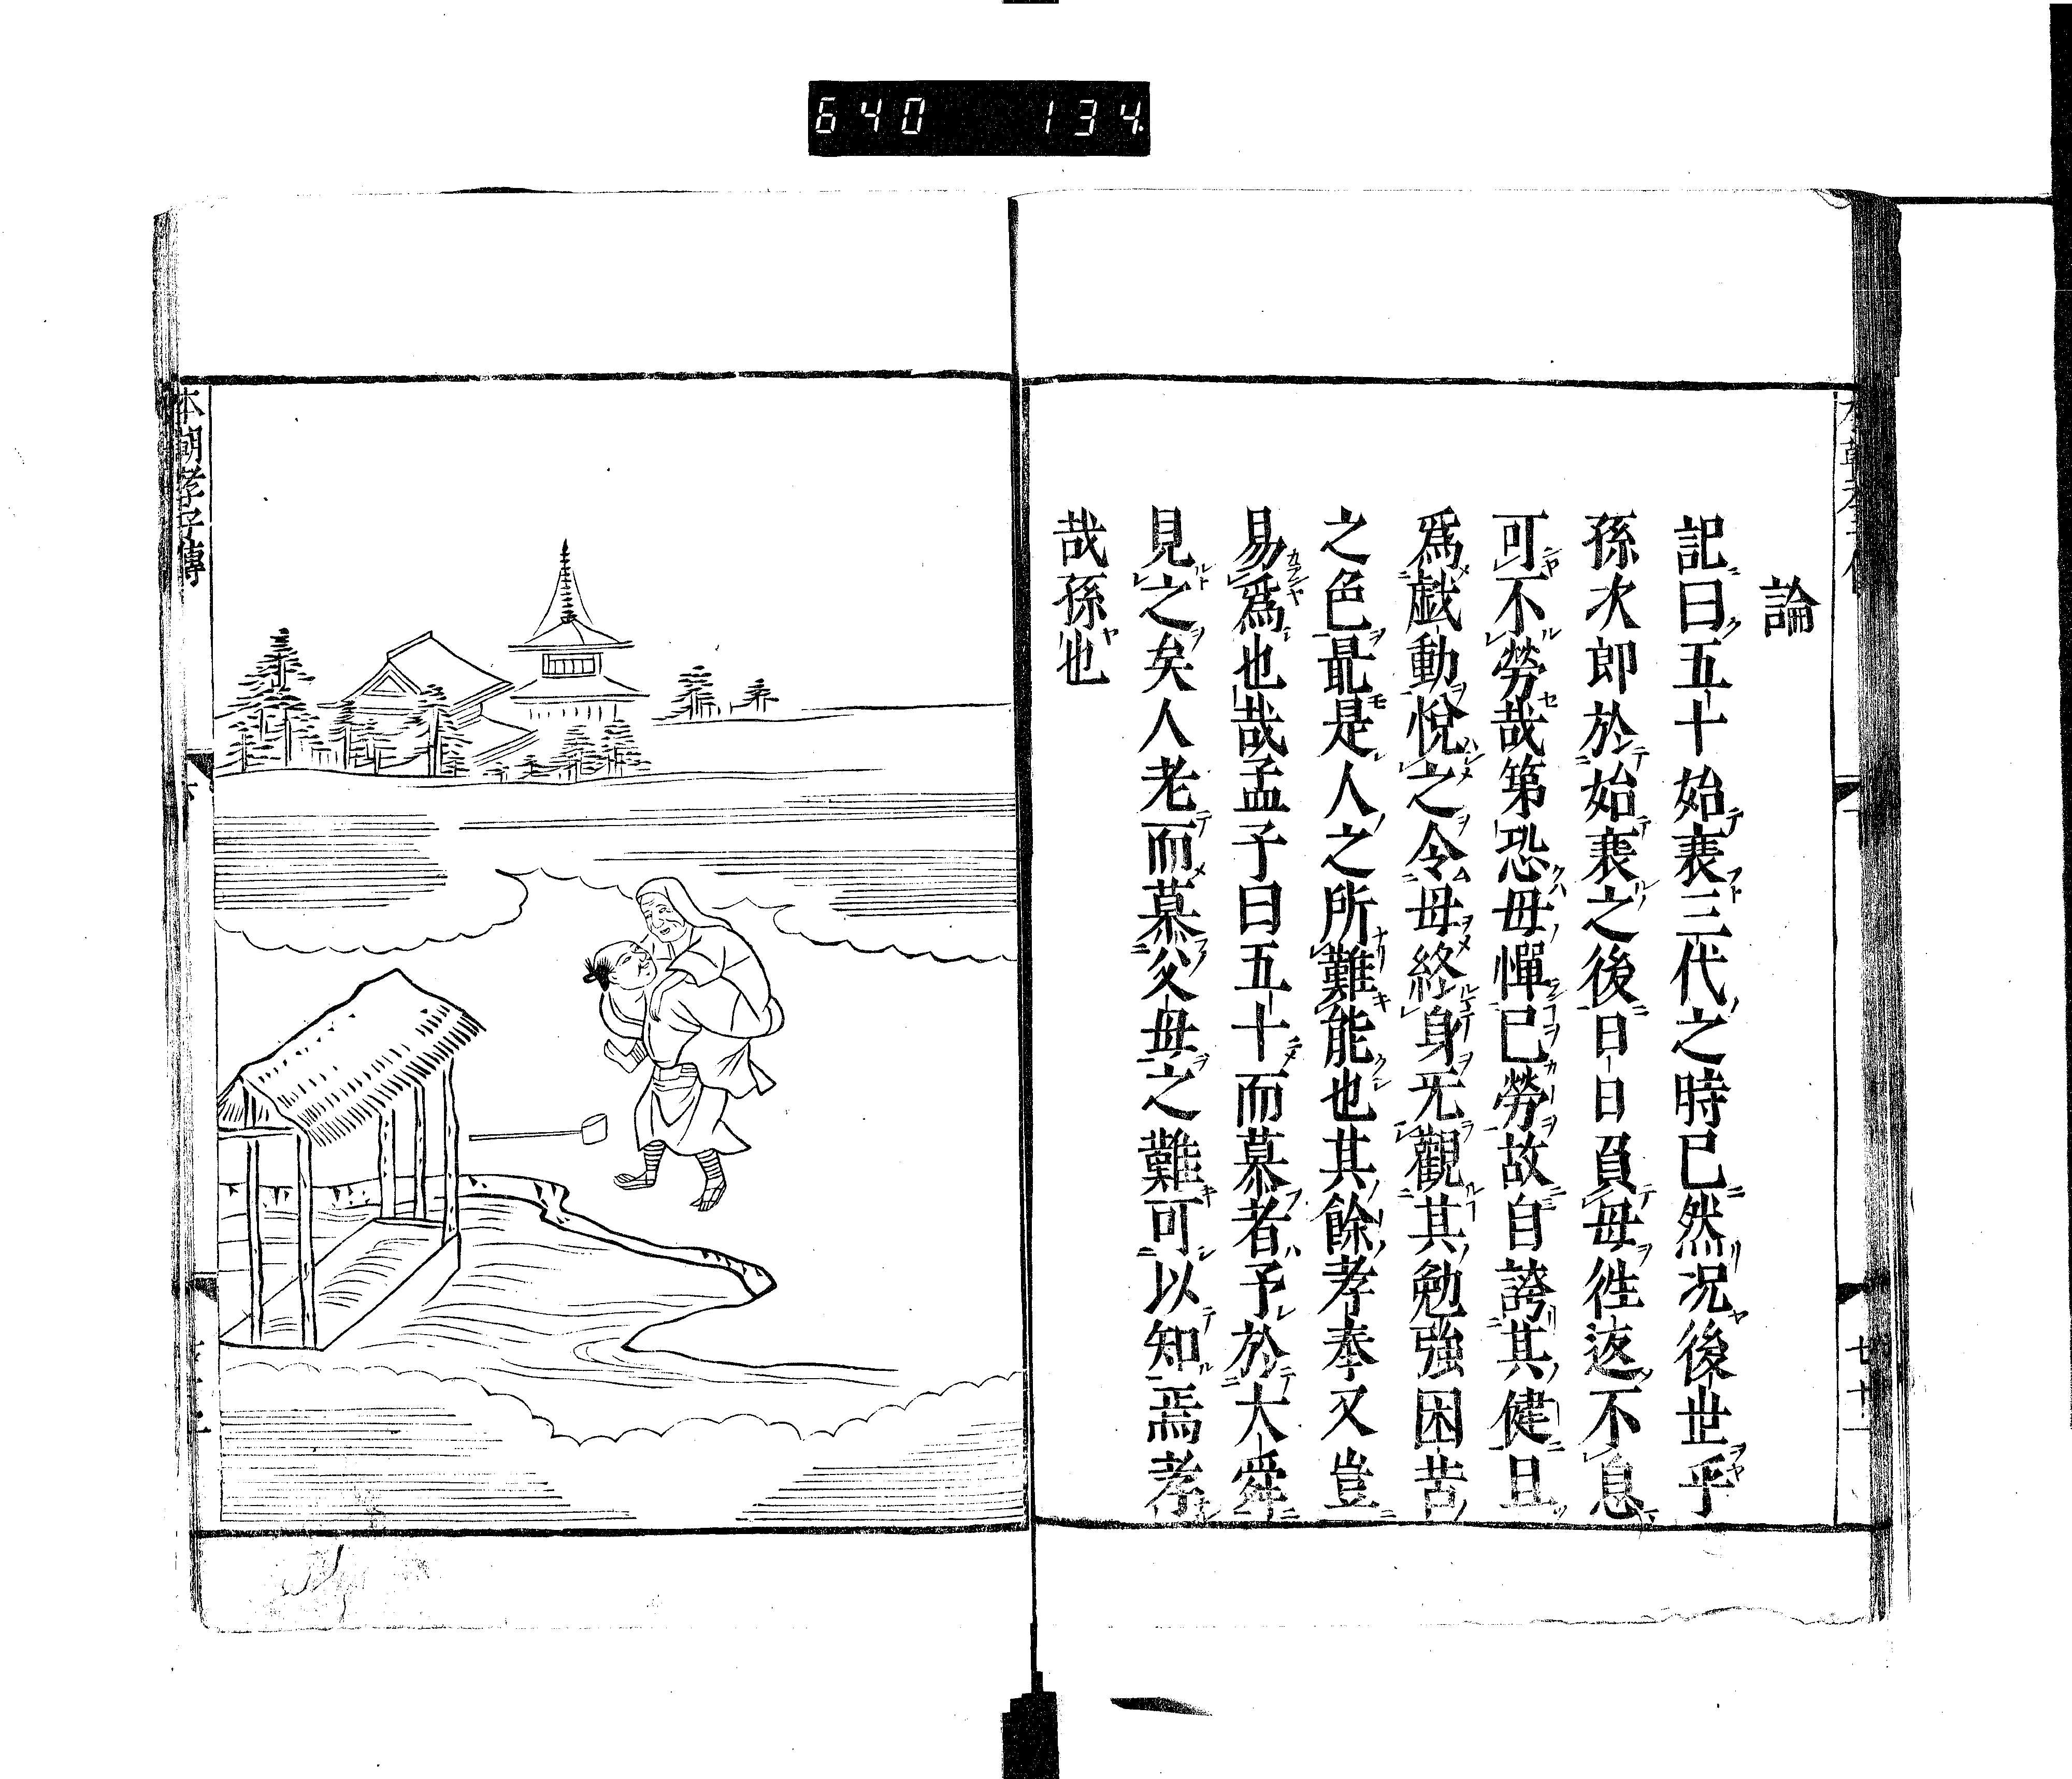 640 134
論
記曰五十始衰三代之時已然況後世乎
孫次郎於始衰之後日日負母徃返不息
可不勞哉第恐母憚已勞故自誇其健且
爲戯動悅之令母終身无觀其勉強困苦
之色最是人之所難能也其餘孝奉又豈
易爲也哉孟子曰五十而慕者予於大舜
見之矣人老而慕父母之難可以知焉孝
哉孫也
本朝孝子傳